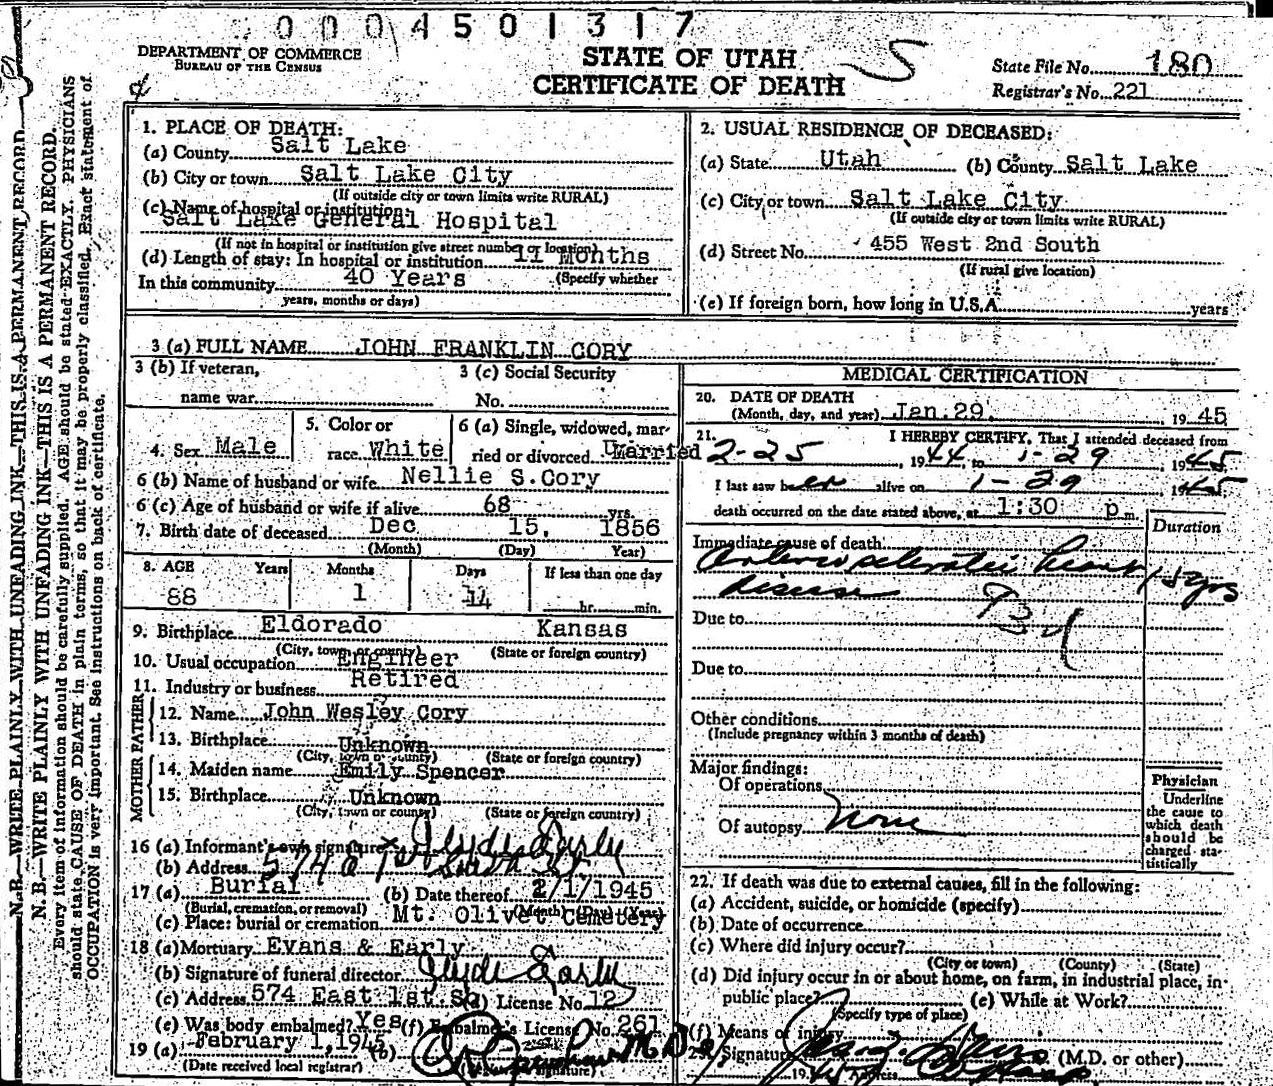 0004501317
DEPARTMENT OF COMMERCE
BUREAU OF THE CENSUS
STATE OF UTAH
CERTIFICATE OF DEATH
State File No. 180
Registrar's No. 221
N. B.—WRITE PLAINLY WITH UNFADING INK—THIS IS A PERMANENT RECORD.
N. B.—WRITE PLAINLY WITH UNFADING INK—THIS IS A PERMANENT RECORD.
Every item of information should be carefully supplied. AGE should be stated EXACTLY. PHYSICIANS
should state CAUSE OF DEATH in plain terms, so that it may be properly classified. Exact statement of
OCCUPATION is very important. See instructions on back of certificate.
1. PLACE OF DEATH:
(a) County Salt Lake
(b) City or town Salt Lake City
(If outside city or town limits write RURAL)
(c) Name of hospital or institution:
Salt Lake General Hospital
(If not in hospital or institution give street number or location)
(d) Length of stay: In hospital or institution 11 Months
In this community 40 Years (Specify whether
years, months or days)
2. USUAL RESIDENCE OF DECEASED:
(a) State Utah (b) County Salt Lake
(c) City or town Salt Lake City
(If outside city or town limits write RURAL)
(d) Street No. 455 West 2nd South
(If rural give location)
(e) If foreign born, how long in U.S.A. years
3 (a) FULL NAME JOHN FRANKLIN CORY
3 (b) If veteran,
name war
3 (c) Social Security
No.
4. Sex Male
5. Color or
race White
6 (a) Single, widowed, mar-
ried or divorced Married
6 (b) Name of husband or wife Nellie S. Cory
6 (c) Age of husband or wife if alive 68 yrs.
7. Birth date of deceased Dec 15, 1856
(Month) (Day) Year)
8. AGE Years Months Days If less than one day
88 1 14 hr. min.
9. Birthplace Eldorado Kansas
(City, town, or county) (State or foreign country)
10. Usual occupation Engineer
11. Industry or business Retired
FATHER
12. Name John Wesley Cory
13. Birthplace Unknown
(City, town or county) (State or foreign country)
MOTHER
14. Maiden name Emily Spencer
15. Birthplace Unknown
(City, town or county) (State or foreign country)
16 (a) Informant's own signature Clyde Early
(b) Address 574 E 1st South St.
17 (a) Burial (b) Date thereof 2/1/1945
(Burial, cremation, or removal) (Month) (Day) (Year)
(c) Place: burial or cremation Mt. Olivet Cemetery
18 (a) Mortuary Evans & Early
(b) Signature of funeral director Clyde Early
(c) Address 574 East 1st. So (d) License No. 12
(e) Was body embalmed? Yes (f) Embalmer's License No. 261
19 (a) February 1, 1945 (b) M.D.
(Date received local registrar) signature)
MEDICAL CERTIFICATION
20. DATE OF DEATH
(Month, day, and year) Jan. 29. 19 45
21. I HEREBY CERTIFY, That I attended deceased from
2-25, 1944, to 1-29, 1945
I last saw h er alive on 1-29 1945
death occurred on the date stated above, at 1:30 p m.
Duration
Immediate cause of death
Arteriosclerotic heart 15 yrs
disease
Due to
Due to
Other conditions
(Include pregnancy within 3 months of death)
Major findings:
Of operations
Of autopsy None
Physician
Underline
the cause to
which death
should be
charged sta-
tistically
22. If death was due to external causes, fill in the following:
(a) Accident, suicide, or homicide (specify)
(b) Date of occurrence
(c) Where did injury occur?
(City or town) (County) (State)
(d) Did injury occur in or about home, on farm, in industrial place, in
public place? (e) While at Work?
(Specify type of place)
(f) Means of injury
Signature (M.D. or other)
19 45 Address